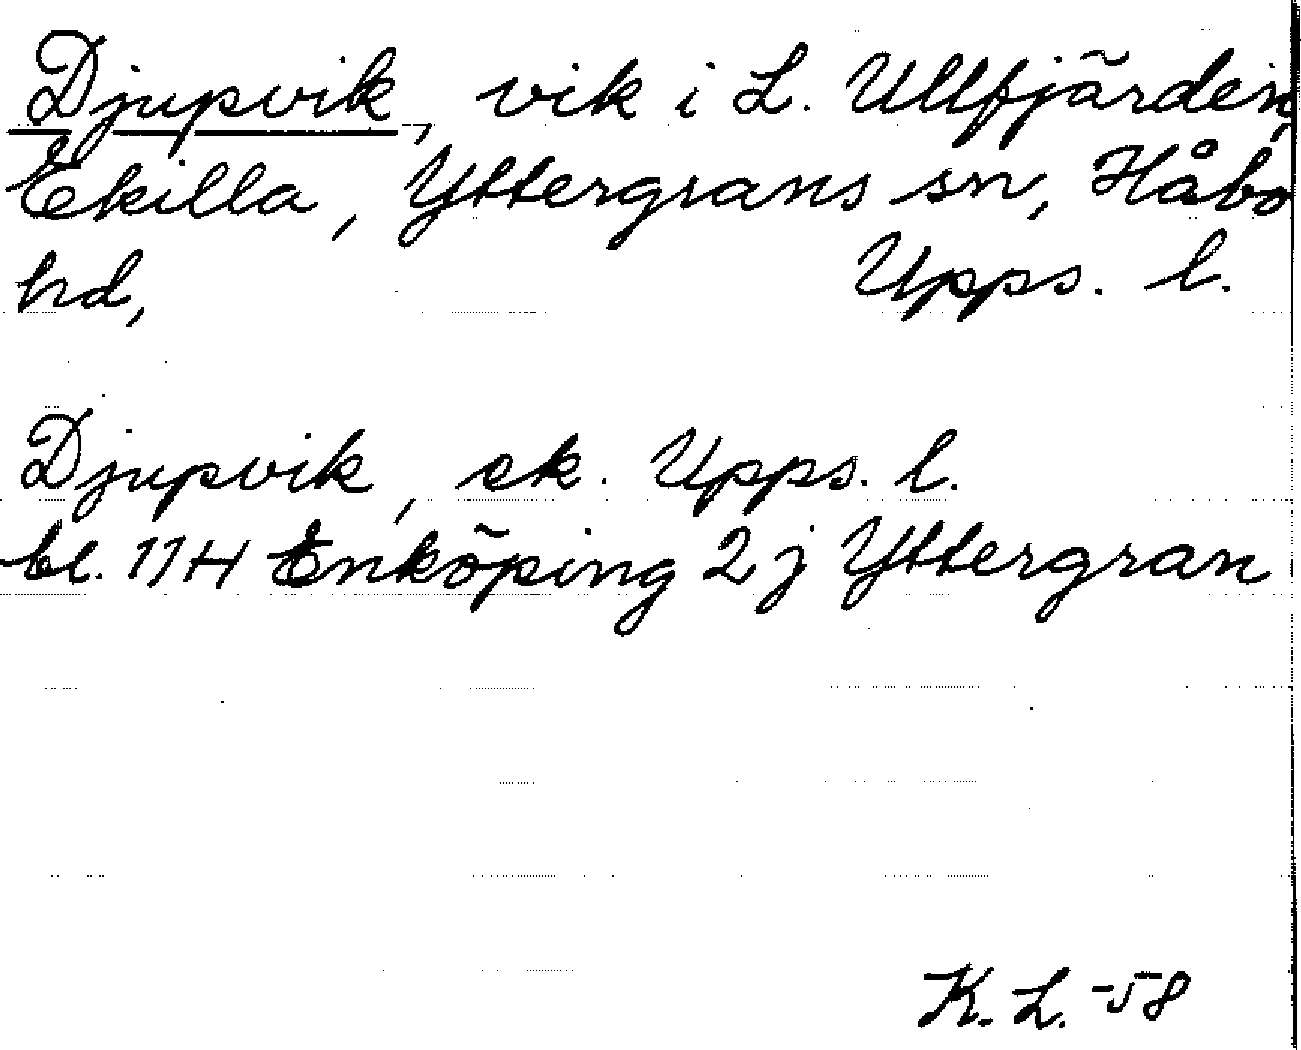 Djupvik, vik i L. Ullfjärden,
Ekilla, Yttergrans sn, Håbo
hd, Upps. l.
Djupvik, ek. Upps. l.
bl. 11H Enköping 2j Yttergran
K. L. -58